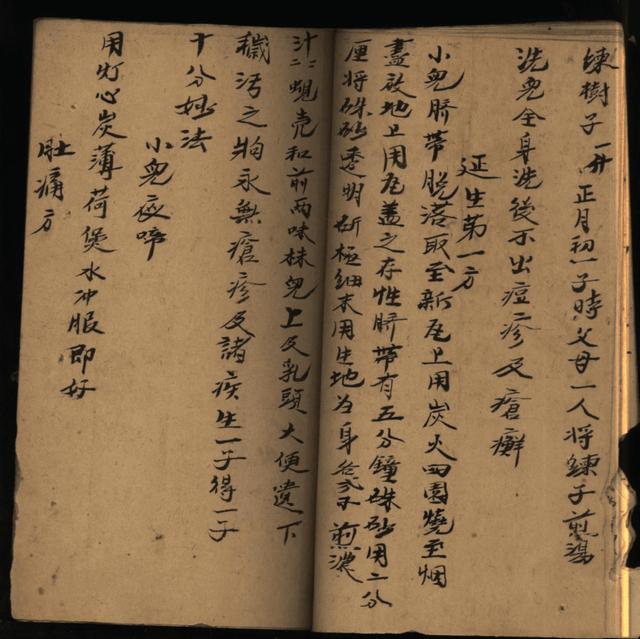 楝樹子一升正月初一子時父母一人將鍊子煎湯
洗兒全身洗後不出痘疹及瘡癬
延生第一方
小兒脐带脫落取至新瓦上用炭火四圍燒至烟
盡放地上用瓦盖之存性脐带有五分鐘硃砂用二分
厘将硃砂透明研極細末用生地为身煎濃
汁二蜆壳和前兩味抹兒上及乳頭大便遺下
穢污之物永無瘡疹及諸疾生一子得一子
十分妙法
小兒夜啼
用灯心炭薄荷煲水冲服即好
肚痛方